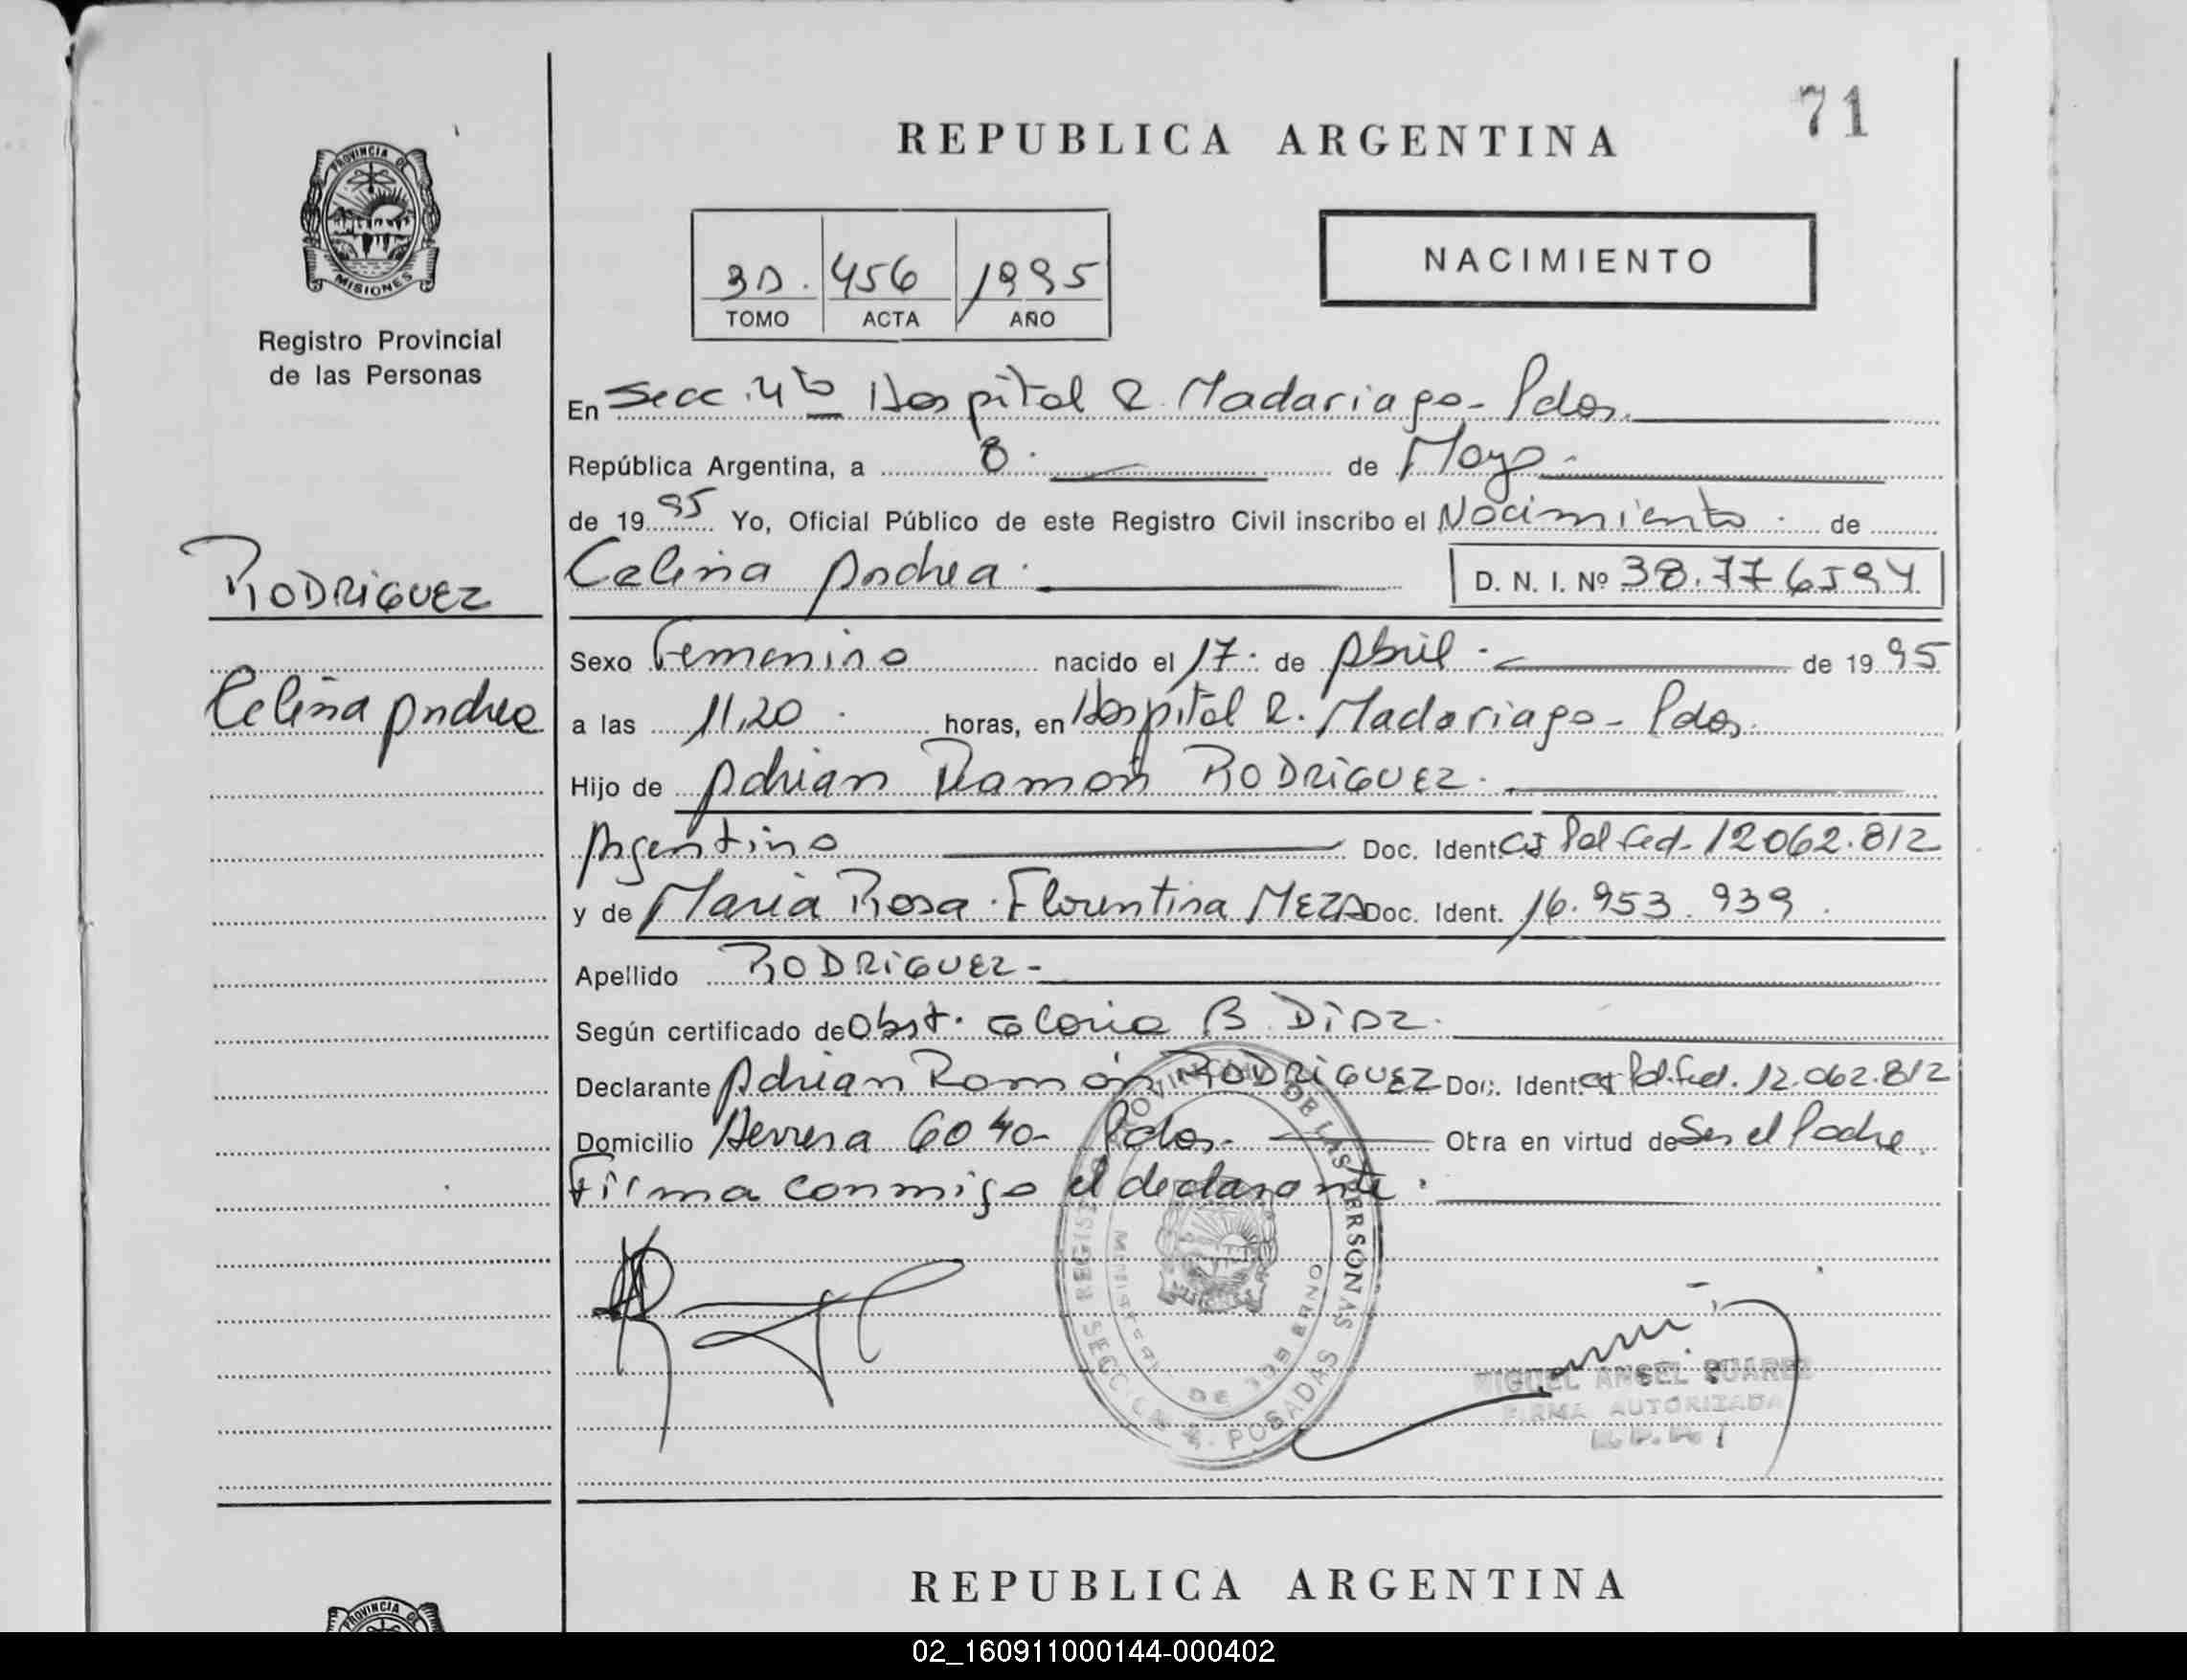 71
REPUBLICA ARGENTINA
PROVINCIA DE
MISIONES
Registro Provincial
de las Personas
3D. 456 1995
TOMO ACTA AÑO
NACIMIENTO
En Secc. 4ta Hospital R. Madariaga - Pdas.
República Argentina, a 8. de Mayo.
de 1995 Yo, Oficial Público de este Registro Civil inscribo el Nacimiento. de
RODRIGUEZ
Celina Andrea. D. N. I. Nº 38.776594
Sexo Femenino nacido el 17. de Abril. de 1995
Celina Andrea
a las 11,20. horas, en Hospital R. Madariaga - Pdas.
Hijo de Adrian Ramón RODRIGUEZ.
Argentino Doc. Ident. CI Pol Fed. 12062.812
y de Maria Rosa Florentina MEZA Doc. Ident. 16.953.939.
Apellido RODRIGUEZ-
Según certificado de Obst. Gloria B. DiAz.
Declarante Adrian Ramón RODRIGUEZ Doc. Ident. CI Pol. Fed. 12.062.812
Domicilio Herrera 6040- Pdas. Obra en virtud de Ser el Padre.
Firma conmigo el declarante.
PROVINCIAL DE LAS PERSONAS
REGIS
MINISTERIO DE GOBIERNO
SECCION 4. POSADAS
MIGUEL ANGEL SUAREZ
FIRMA AUTORIZADA
REPUBLICA ARGENTINA
PROVINCIA DE
02_160911000144-000402